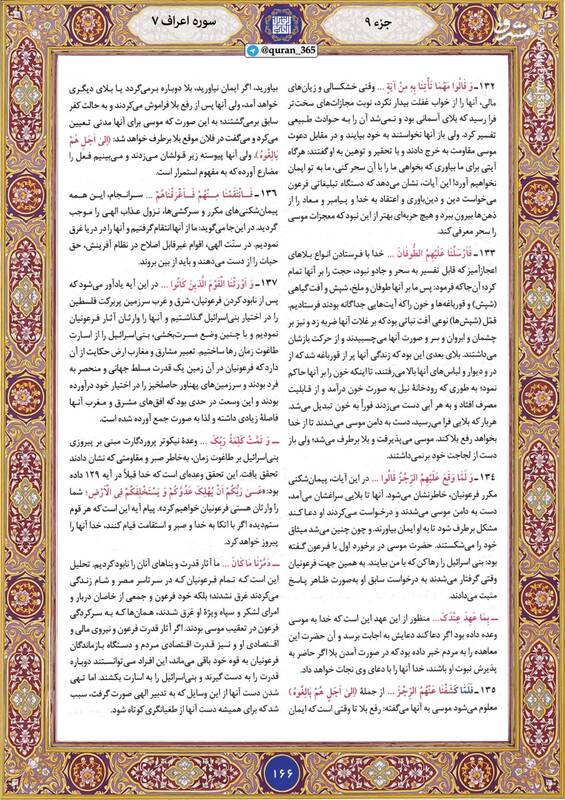 سوره اعراف ۷
جزء ۹
@quran_365
مشرق
۱۳۲ـ وَ قَالُوا مَهْمَا تَأْتِنَا بِهِ مِنْ آيَةٍ ... وقتی خشکسالی و زیان‌های
مالی، آنها را از خواب غفلت بیدار نکرد، نوبت مجازات‌های سخت‌تر
فرا رسید که بلای آسمانی بود و نمی‌شد آن را به حوادث طبیعی
تفسیر کرد. ولی باز آنها نخواستند به خود بیایند و در مقابل دعوت
موسی مقاومت به خرج دادند و با تحقیر و توهین به او گفتند: هرگاه
آیتی برای ما بیاوری که بخواهی ما را با آن سحر کنی، ما به تو ایمان
نخواهیم آورد! این آیات، نشان می‌دهد که دستگاه تبلیغاتی فرعون
می‌خواست دین و دین‌باوری و اعتقاد به خدا و پیامبر و معاد را از
ذهن‌ها بیرون ببرد و هیچ حربه‌ای بهتر از این نبود که معجزات موسی
را سحر معرفی کند.
۱۳۳ـ فَأَرْسَلْنَا عَلَيْهِمُ الطُّوفَانَ... خدا با فرستادن انواع بلاهای
اعجازآمیز که قابل تفسیر به سحر و جادو نبود، حجت را بر آنها تمام
کرد؛ آن‌جا که فرمود: پس ما بر آنها طوفان و ملخ، شپش و آفت گیاهی
(شپش) و قورباغه‌ها و خون را که آیت‌هایی جداگانه بودند فرستادیم.
قمّل (شپش‌ها) نوعی آفت نباتی بود که بر غلات آنها ضربه زد و نیز بر
چشمان و ابروان و سر و صورت آنها می‌چسبیدند و از حرکت بازشان
می‌داشتند. بلای بعدی این بود که زندگی آنها پر از قورباغه شد که از
در و دیوار و لباس‌های آنها بالا می‌رفتند، تا اینکه خون را بر آنها حاکم
نمود؛ به طوری که رودخانۀ نیل به صورت خون درآمد و از قابلیت
مصرف افتاد و به هر آبی دست می‌زدند فوراً به خون تبدیل می‌شد.
هربار که بلایی فرا می‌رسید، دست به دامن موسی می‌شدند تا از خدا
بخواهد رفع بلا کند. موسی می‌پذیرفت و بلا برطرف می‌شد؛ ولی باز
دست از لجاجت خود برنمی‌داشتند.
۱۳۴ـ وَ لَمَّا وَقَعَ عَلَيْهِمُ الرِّجْزُ قَالُوا ... در این آیات، پیمان‌شکنی
مکرر فرعونیان، خاطرنشان می‌شود. آنها تا بلایی سراغشان می‌آمد،
دست به دامن موسی می‌شدند و درخواست می‌کردند او دعا کند
مشکل برطرف شود تا به او ایمان بیاورند. و چون چنین می‌شد میثاق
خود را می‌شکستند. حضرت موسی در برخورد اول با فرعون گفته
بود: بنی اسرائیل را رها کن که با من بیایند. به همین جهت فرعونیان
وقتی گرفتار می‌شدند به درخواست سابق او به‌صورت ظاهر پاسخ
مثبت می‌دادند.
ـ بِمَا عَهِدَ عِنْدَكَ... منظور از این عهد این است که خدا به موسی
وعده داده بود اگر دعا کند دعایش به اجابت برسد و آن حضرت این
معاهده را به مردم خبر داده بود که در صورت آمدن بلا اگر حاضر به
پذیرش نبوت او باشند، خدا آنها را با دعای وی نجات خواهد داد.
۱۳۵ـ فَلَمَّا كَشَفْنَا عَنْهُمُ الرِّجْزَ ... از جملۀ (إِلَى أَجَلٍ هُمْ بَالِغُوهُ)
معلوم می‌شود موسی به آنها می‌گفته: رفع بلا تا وقتی است که ایمان
بیاورید، اگر ایمان نیاورید، بلا دوباره برمی‌گردد یا بلای دیگری
خواهد آمد، ولی آنها پس از رفع بلا فراموش می‌کردند و به حالت کفر
سابق برمی‌گشتند؛ به این صورت که موسی برای آنها مدتی تعیین
می‌کرد و می‌گفت در فلان موقع بلا برطرف خواهد شد؛ (إِلَى أَجَلٍ هُمْ
بَالِغُوهُ). ولی آنها پیوسته زیر قولشان می‌زدند و می‌بینیم فعل را
مضارع آورده که به مفهوم استمرار است.
۱۳۶ـ فَانْتَقَمْنَا مِنْهُمْ فَأَغْرَقْنَاهُمْ ... سرانجام، این همه
پیمان‌شکنی‌های مکرر و سرکشی‌ها، نزول عذاب الهی را موجب
گردید. در این‌جا می‌گوید: ما از آنها انتقام گرفتیم و آنها را در دریا غرق
نمودیم. در سنّت الهی، اقوام غیرقابل اصلاح در نظام آفرینش، حق
حیات را از دست می‌دهند و باید از بین بروند.
۱۳۷ـ وَ أَوْرَثْنَا الْقَوْمَ الَّذِينَ كَانُوا ... در این آیه یادآور می‌شود که
پس از نابود کردن فرعونیان، شرق و غرب سرزمین پربرکت فلسطین
را در اختیار بنی‌اسرائیل گذاشتیم و آنها را وارثان آثار فرعونیان
نمودیم و با چنین وضع مسرت‌بخشی، بنی‌اسرائیل را از اسارت
طاغوت زمان رها ساختیم. تعبیر مشارق و مغارب ارض حکایت از آن
دارد که فرعونیان در آن زمین یک قدرت مسلط جهانی و منحصر به
فرد بودند و سرزمین‌های پهناور حاصلخیز را در اختیار خود درآورده
بودند و این وسعت در حدی بود که افق‌های مشرق و مغرب آنها
فاصلۀ زیادی داشته و لذا به صورت جمع آورده شده است.
ـ وَ تَمَّتْ كَلِمَةُ رَبِّكَ ... وعدۀ نیکوتر پروردگارت مبنی بر پیروزی
بنی‌اسرائیل بر طاغوت زمان، به‌خاطر صبر و مقاومتی که نشان دادند
تحقق یافت. این تحقق وعده‌ای است که خدا قبلاً در آیه ۱۲۹ داده
بود: «عَسَى رَبُّكُمْ أَنْ يُهْلِكَ عَدُوَّكُمْ وَ يَسْتَخْلِفَكُمْ فِي الْأَرْضِ؛ شما
را وارثان هستی فرعونیان خواهیم کرد». پیام آیه این است که هر قوم
ستمدیده اگر با اتکا به خدا و صبر و استقامت قیام کنند، خدا آنها را
پیروز خواهد کرد.
ـ دَمَّرْنَا مَا كَانَ... ما آثار قدرت و بناهای آنان را نابود کردیم. تحلیل
این است که تمام فرعونیان که در سرتاسر مصر و شام زندگی
می‌کردند غرق نشدند؛ بلکه خود فرعون و جمعی از خاصان دربار و
امرای لشکر و سپاه ویژۀ او غرق شدند، همان‌ها که به سرکردگی
فرعون در تعقیب موسی بودند. اگر آثار قدرت فرعون و نیروی مالی و
اقتصادی او و نیز قدرت اقتصادی مردم و دستگاه بازماندگان
فرعونیان به قوه خود باقی می‌ماند، این افراد می‌توانستند دوباره
قدرت را به دست گیرند و بنی‌اسرائیل را به اسارت بکشند. اما تهی
شدن دست آنها از این وسایل که به تدبیر الهی صورت گرفت، سبب
شد که برای همیشه دست آنها از طغیانگری کوتاه شود.
۱۶۶